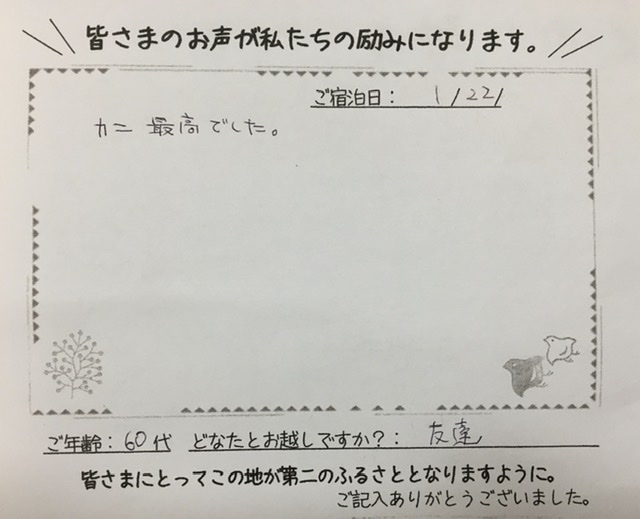 皆さまのお声が私たちの励みになります。
ご宿泊日： 1/22/
カニ 最高でした。
ご年齢：60代 どなたとお越しですか？： 友達
皆さまにとってこの地が第二のふるさととなりますように。
ご記入ありがとうございました。